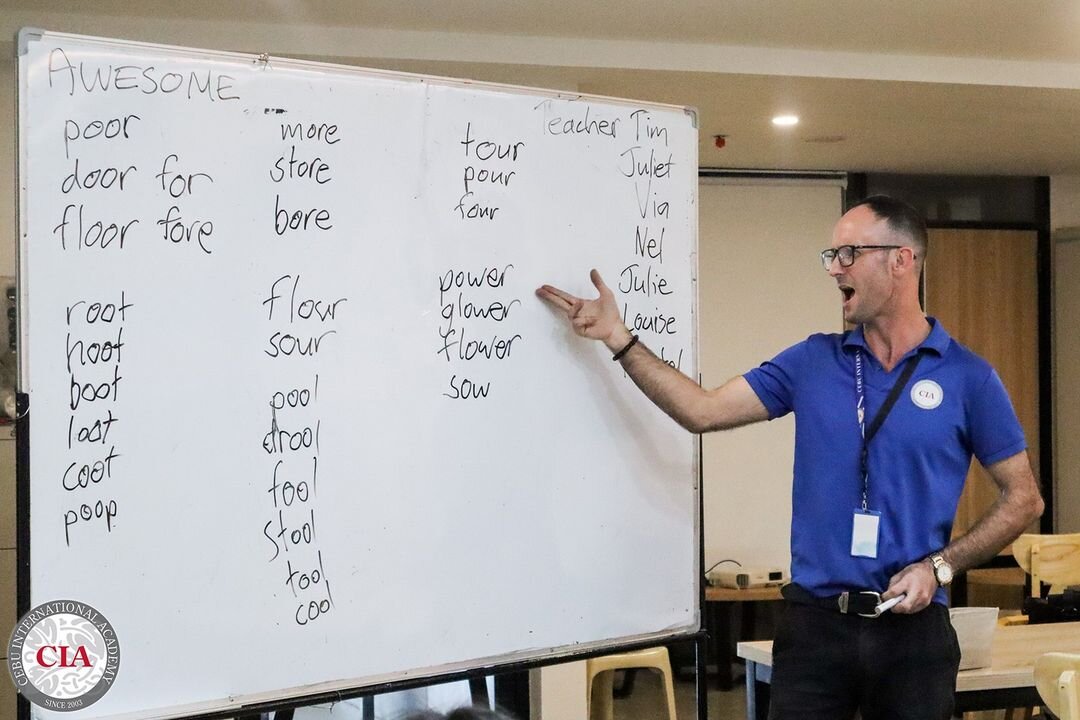 AWESOME
poor
door for
floor fore
root
hoot
boot
loot
coot
poop
more
store
bore
flour
sour
pool
drool
fool
stool
tool
cool
tour
pour
four
power
glower
flower
sow
Teacher Tim
Juliet
Via
Nel
Julie
Louise
CIA
CEBU INTERN
CEBU INTERNATIONAL ACADEMY
CIA
SINCE 2003